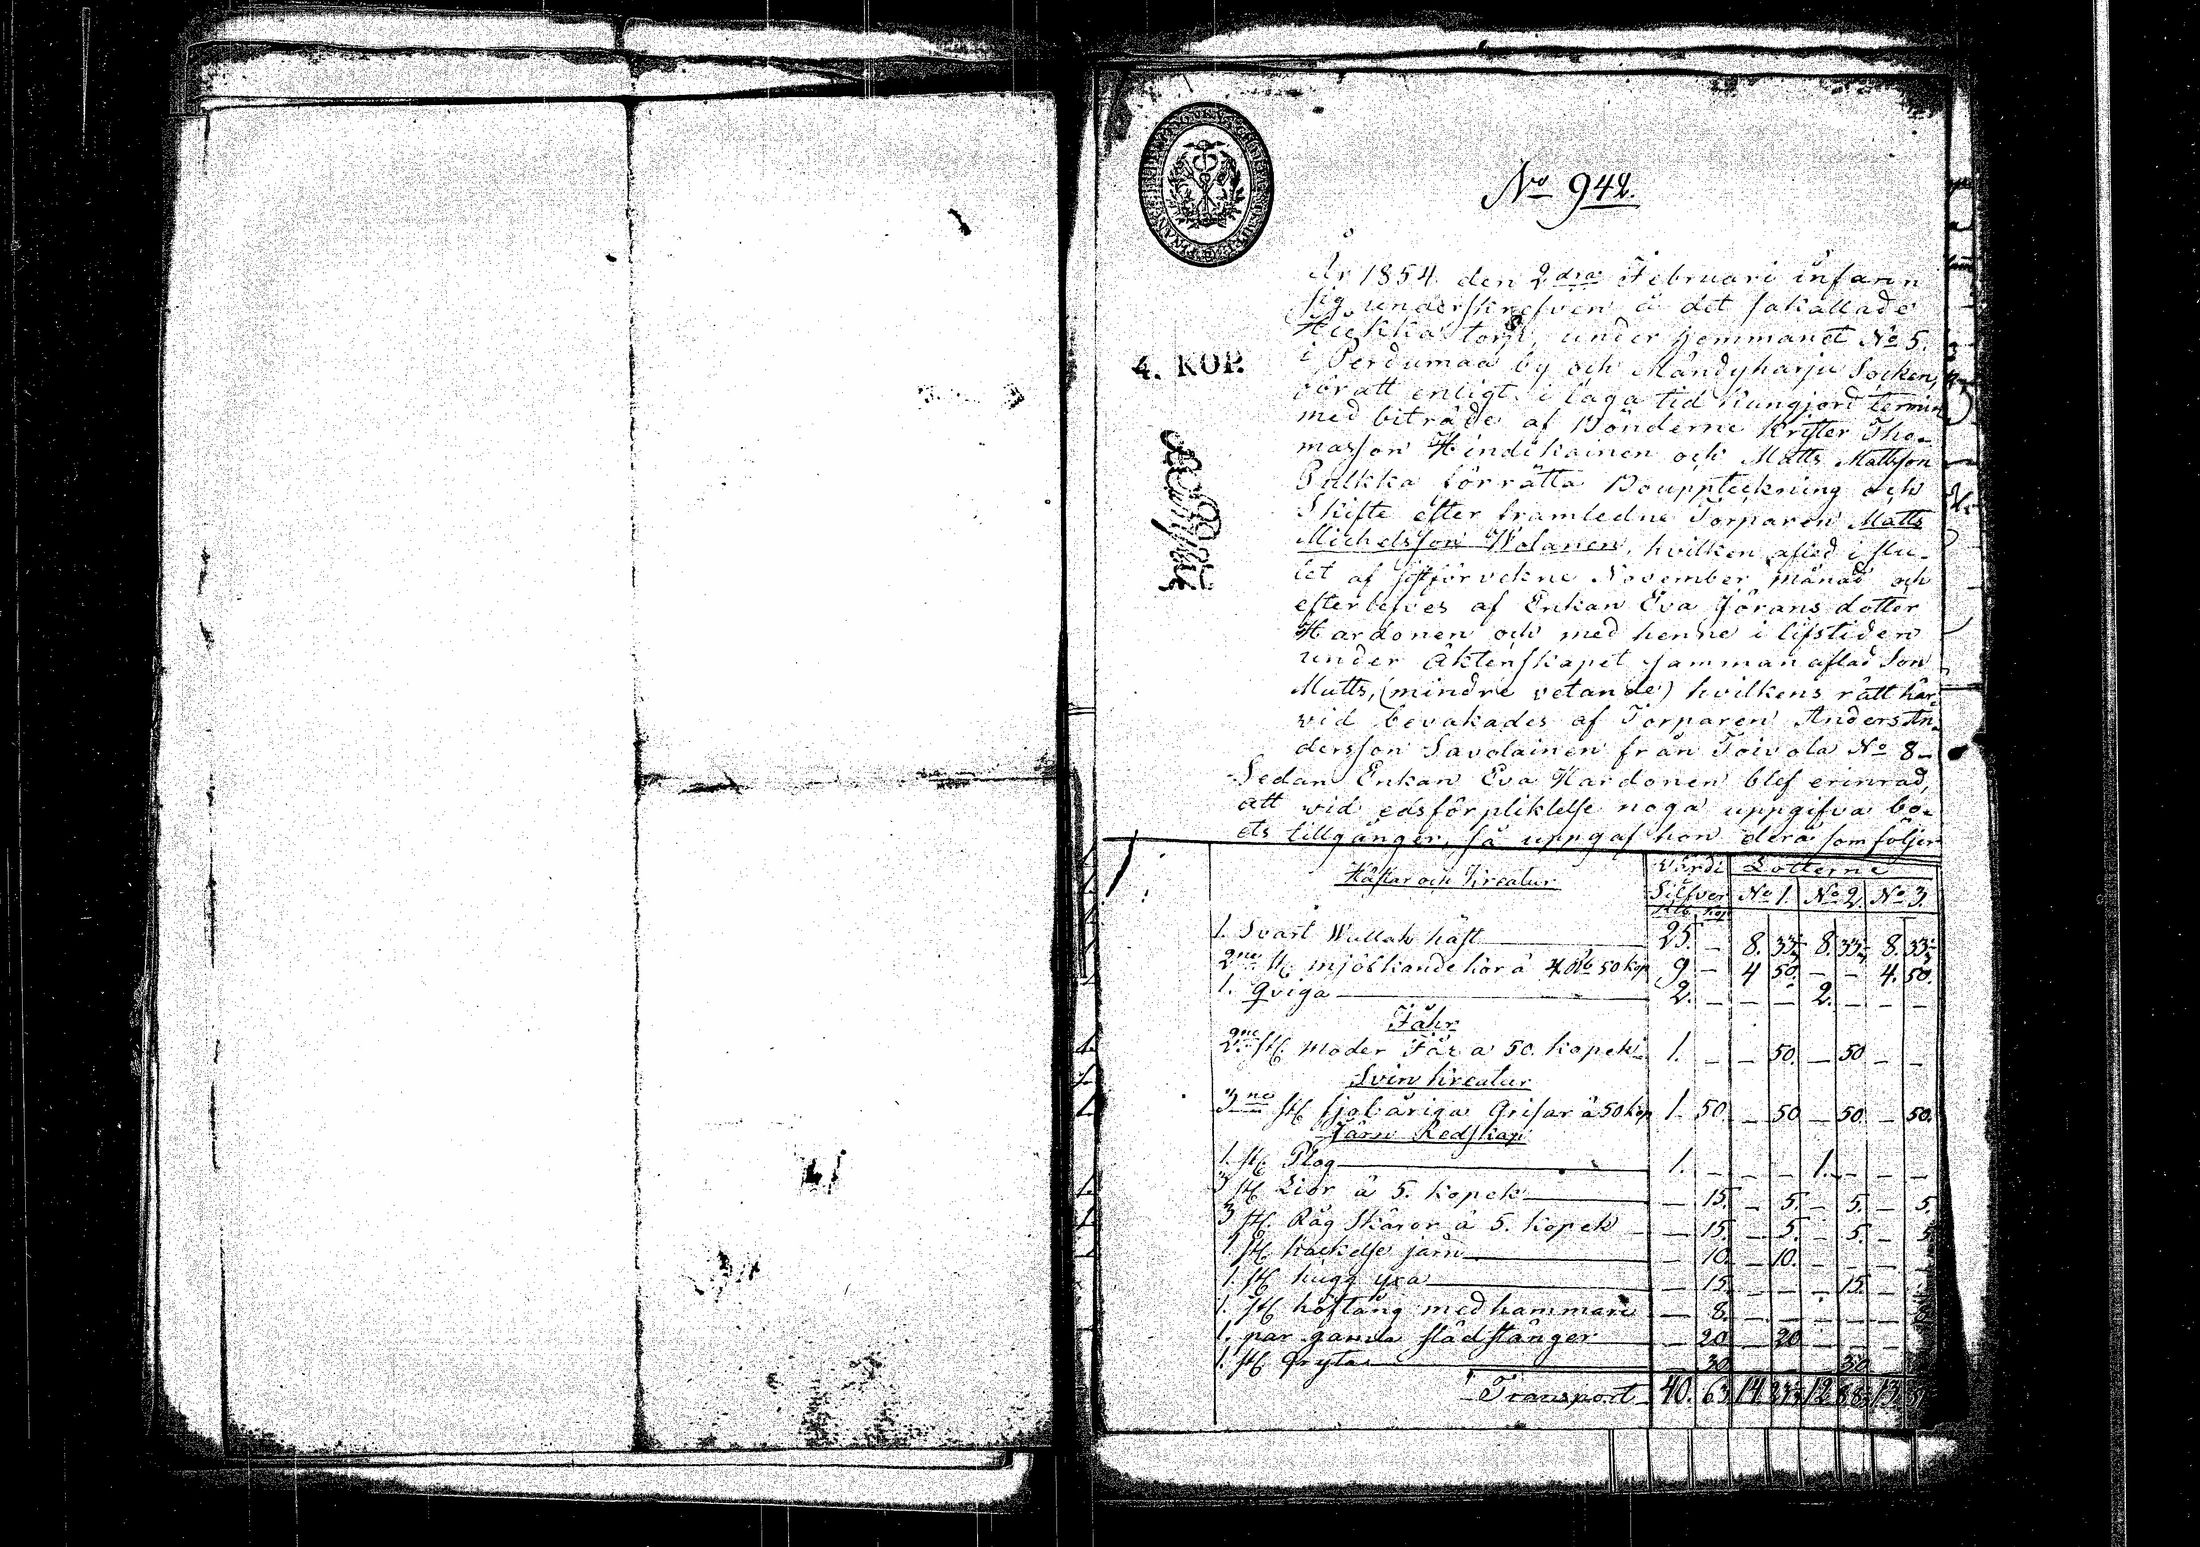 No 942.
År 1854 den 2dra Februari infann
sig underskrefven å det såkallade
Hiekka torp, under hemmanet No 5.
i Perdumaa by och Mändyharju Socken,
för att enligt i laga tid kungjord termin
med biträde af Bönderne Krister Tho-
masson Hindikainen och Matts Mattsson
Pulkka förrätta Bouppteckning och
Skifte efter framledne Torparen Matts
Michelsson Wolanen, hvilken afled i slu-
tet af sistförvekne November månad och
efterlefves af Enkan Eva Jörans dotter
Hardonen och med henne i lifstiden
under äktenskapet samman aflad Son
Matts, (mindre vetande) hvilkens rätt här-
vid bevakades af Torparen Anders An-
dersson Savolainen från Toivola No 8-
Sedan Enkan Eva Hardonen blef erinrad,
att vid edsförpliktelse noga uppgifva bo-
ets tillgångar, så uppgaf hon dera som följer
4. KOP.
Hästar och Kreatur Värde Silfver Rub. Kop. Lotterne No 1. No 2. No 3.
1. Svart Wallak häst 25. - 8. 33 1/3 8. 33 1/3 8. 33 1/3
2ne st. mjölkande kor à 4 Rub 50 kop 9 - 4 50. - - 4. 50.
1. qviga 2. - - - 2. - - -
Fåhr
2ne st. moder Får a 50. kopek 1. - - 50. - 50 - -
Svin kreatur
3ne st. fjol åriga Grisar à 50 kop 1. 50. - 50 - 50. - 50.
Järn Redskap
1. st. Plog 1. - - - 1. - - -
3 st. Liar à 5. kopek - 15. - 5. - 5. - 5.
3 st. Råg Skäror à 5. kopek - 15. - 5. - 5. - 5
1. st. hackelse järn - 10. - 10. - - - -
1. st. hugg yxa - 15. - - - 15. - -
1. st. hoftång med hammare - 8. - - - - - 8
1. par gamla städ stänger - 20 - 20 - - - -
1. st. Gryta - 30 30
Transport 40. 63 14. 23 1/3 12 88 1/3 13. 51 1/3